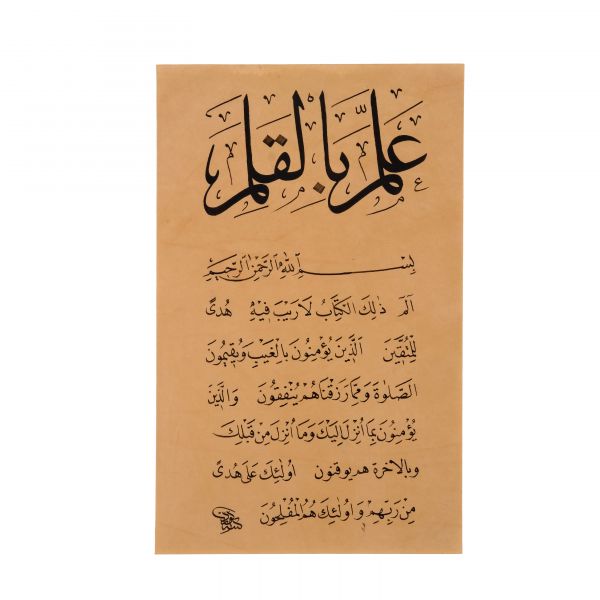 علم بالقلم
بسم الله الرحمن الرحيم
الم ذلك الكتاب لا ريب فيه هدى
للمتقين الذين يؤمنون بالغيب ويقيمون
الصلوة ومما رزقناهم ينفقون والذين
يؤمنون بما انزل اليك وما انزل من قبلك
وبالاخرة هم يوقنون اولئك على هدى
من ربهم واولئك هم المفلحون